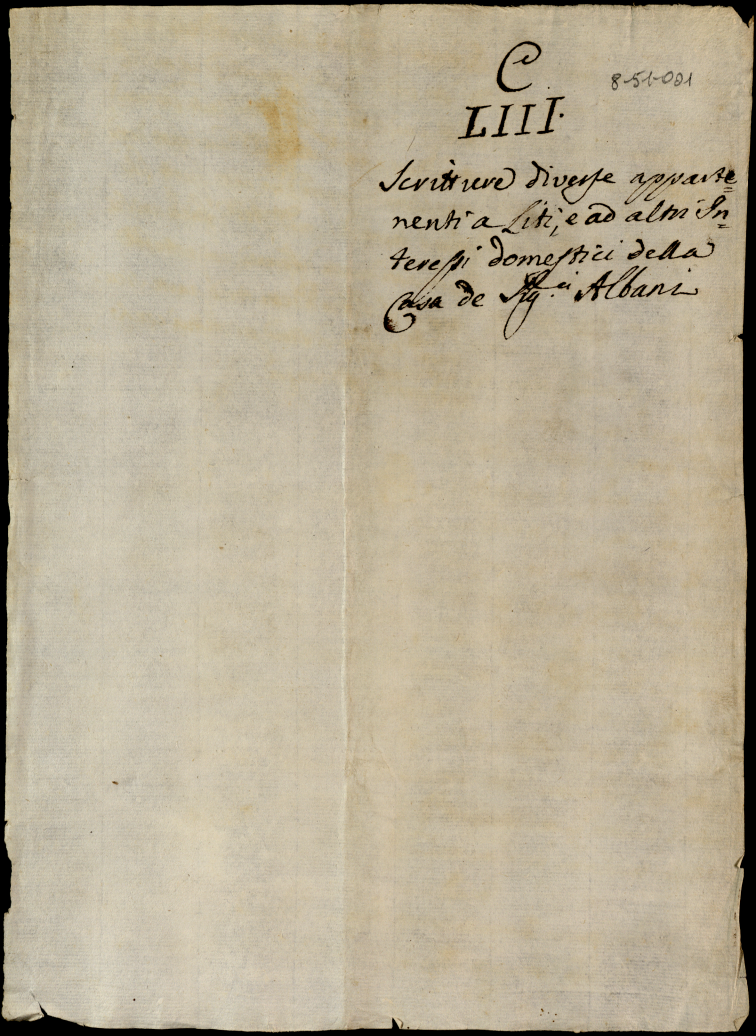 C
8-51-001
LIII.
Scritture diverse apparte=
nenti a Liti, e ad altri In=
teressi domestici della
Casa de Sig.ri Albani